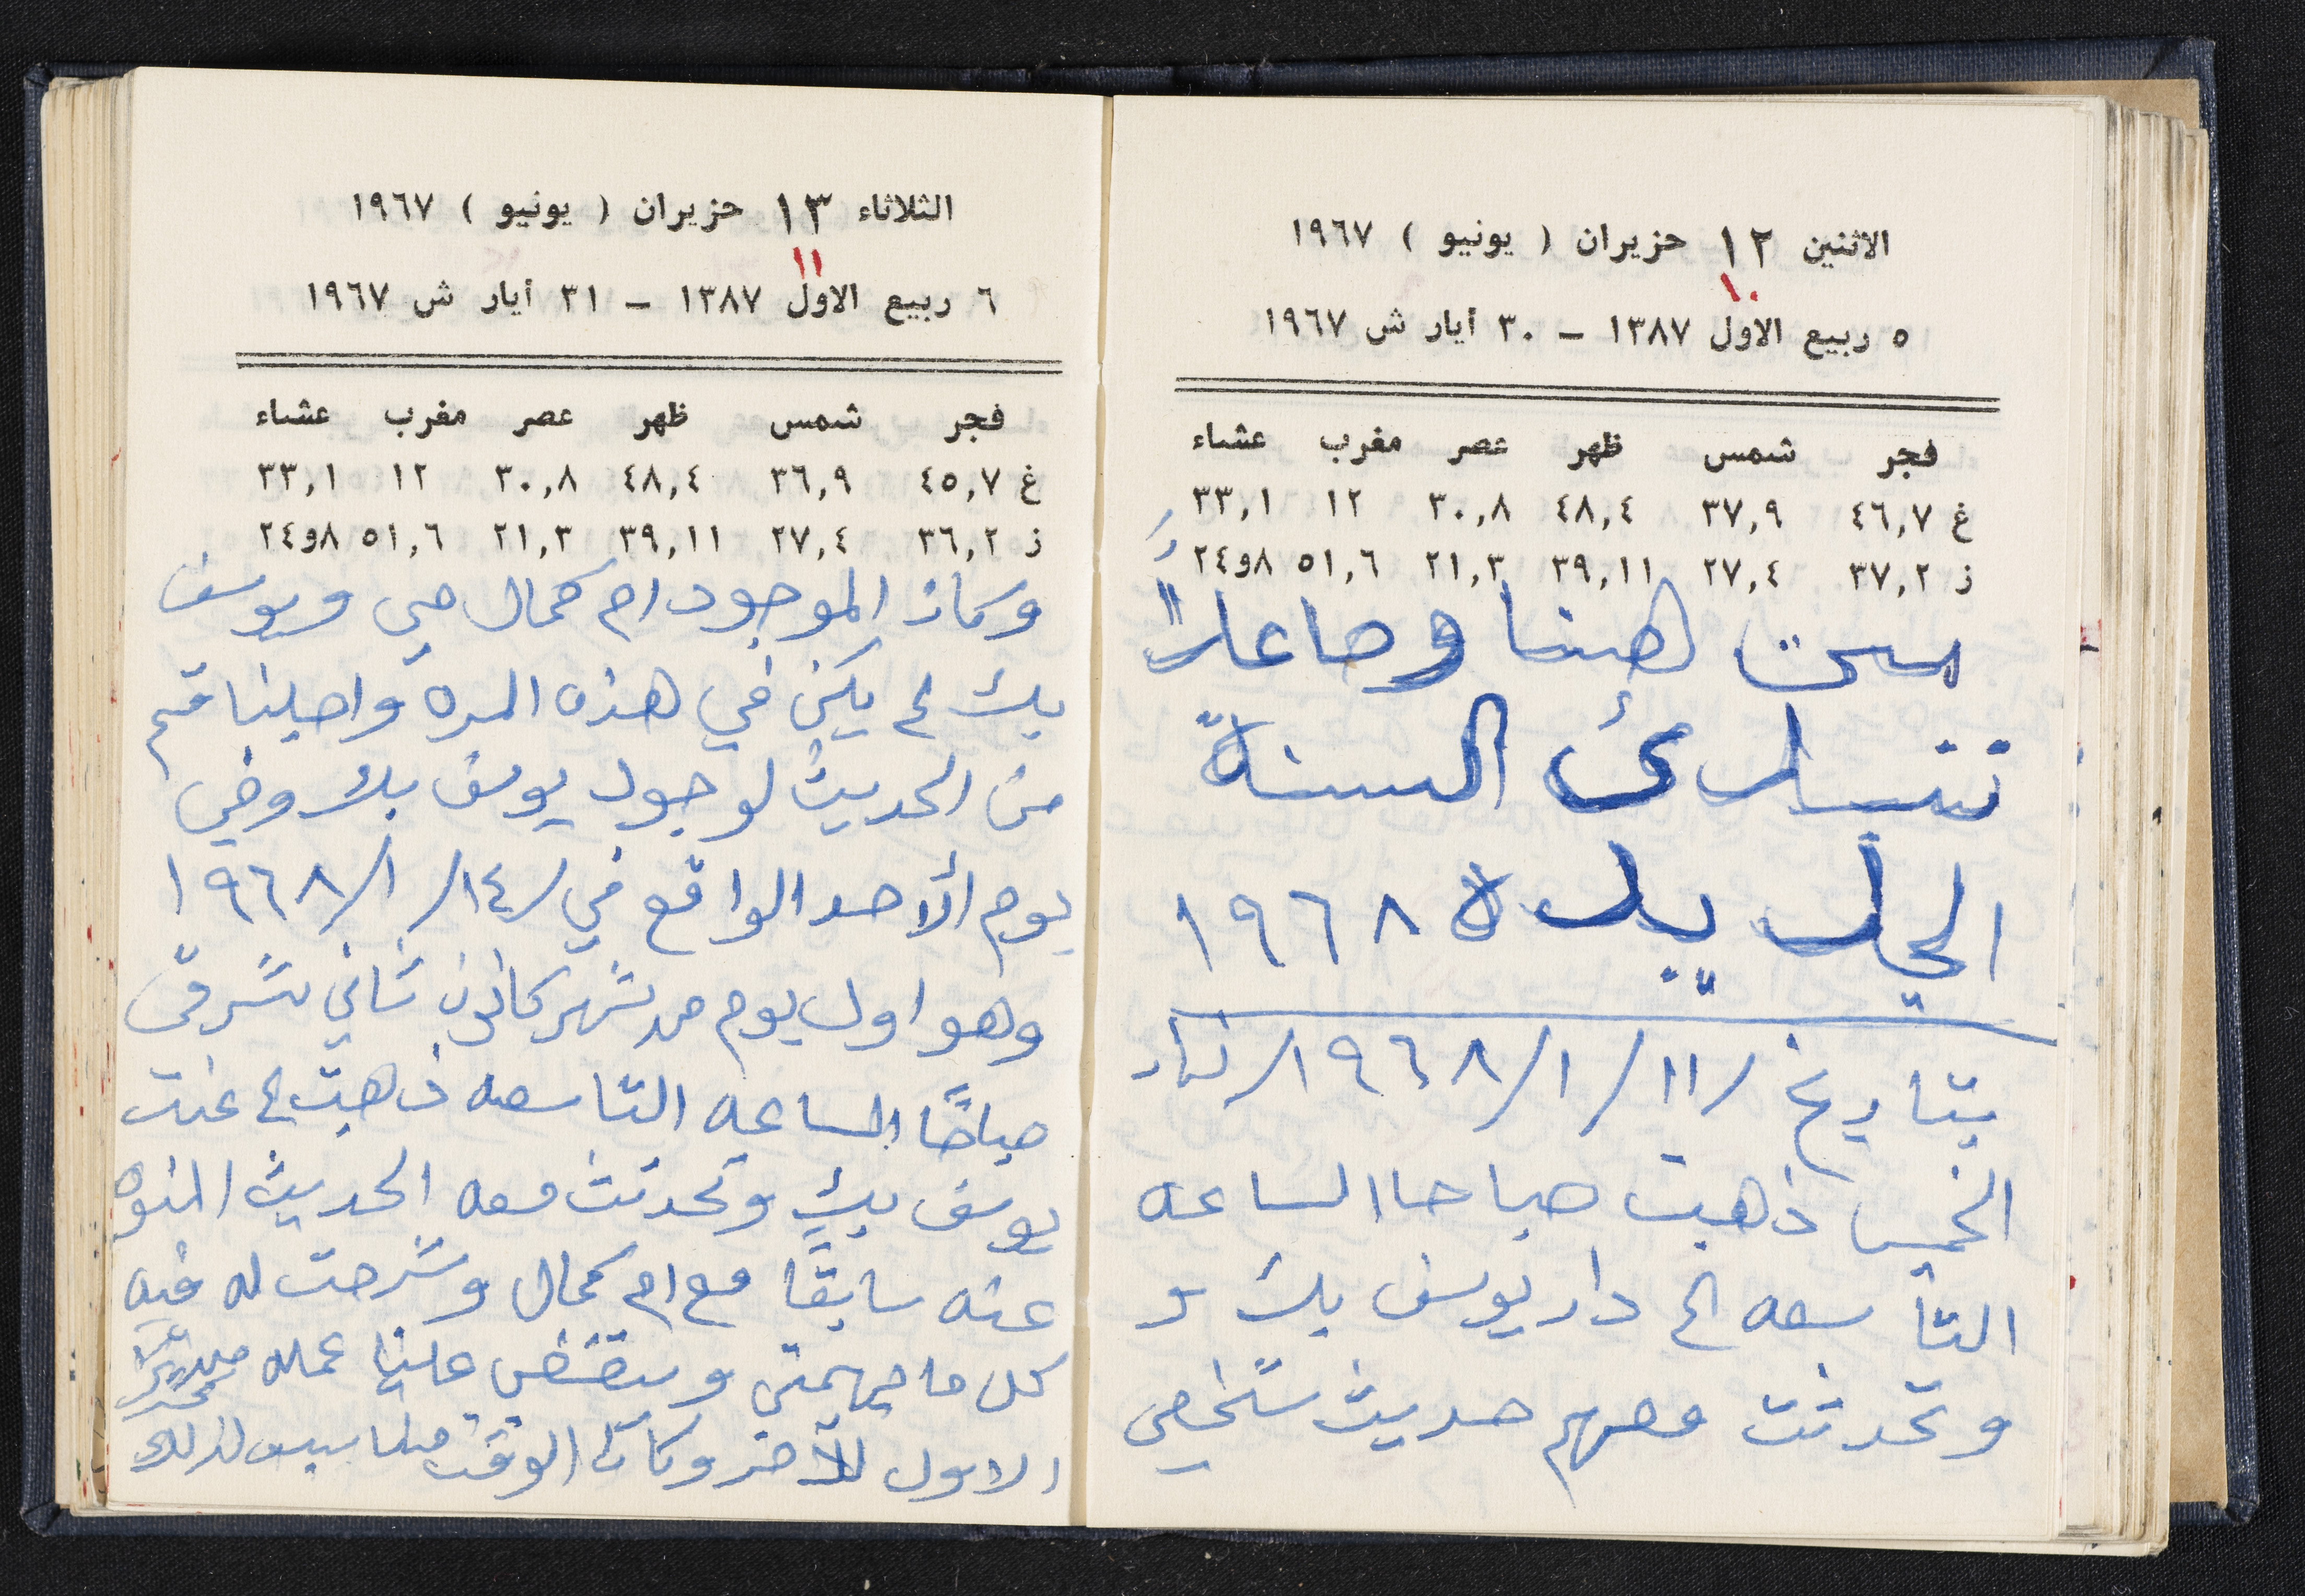 الاثنين ١٢ حزيران ( يونيو ) ١٩٦٧
١٠
٥ ربيع الاول ١٣٨٧ – ٣٠ أيار ش ١٩٦٧
فجر شمس ظهر عصر مغرب عشاء
غ ٤٦,٧ ٣٧,٩ ٤٨,٤ ٣٠,٨ ١٢ ٣٣,١
ز ٣٧,٢ ٢٧,٤ ٣٩,١١ ٢١,٣ ٥١,٦ ٨و٢٤
من هنا وصاعداً
تبتدئ السنة
الجديدة ١٩٦٨
بتاريخ /١١/١/١٩٦٨ نهار
الخميس ذهبت صباحا الساعه
التاسعه الى دار يوسف بك و
وتحدثت معهم حديث شخصي
الثلاثاء ١٣ حزيران ( يونيو ) ١٩٦٧
١١
٦ ربيع الاول ١٣٨٧ – ٣١ أيار ش ١٩٦٧
فجر شمس ظهر عصر مغرب عشاء
غ ٤٥,٧ ٣٦,٩ ٤٨,٤ ٣٠,٨ ١٢ ٣٣,١
ز ٣٦,٢ ٢٧,٤ ٣٩,١١ ٢١,٣ ٥١,٦ ٨و٢٤
وكان الموجود ام كمال هي ويوسف
بك لم يكن في هذه المره واجلنا قسم
من الحديث لوجود يوسف بك وفي
يوم ألاحد الواقع في /١٤/١/١٩٦٨
وهو اول يوم من شهر كانون ثاني شرقي
صباحًا الساعه التاسعه ذهبت لى عند
يوسف بك وتحدثت معه الحديث المنوه
عنه سابقًا مع ام كمال وشرحت له فيه
كل ما يهمني ويقتضي علينا عمله من
الاول للآخر وكان الوقت مناسب لذلك